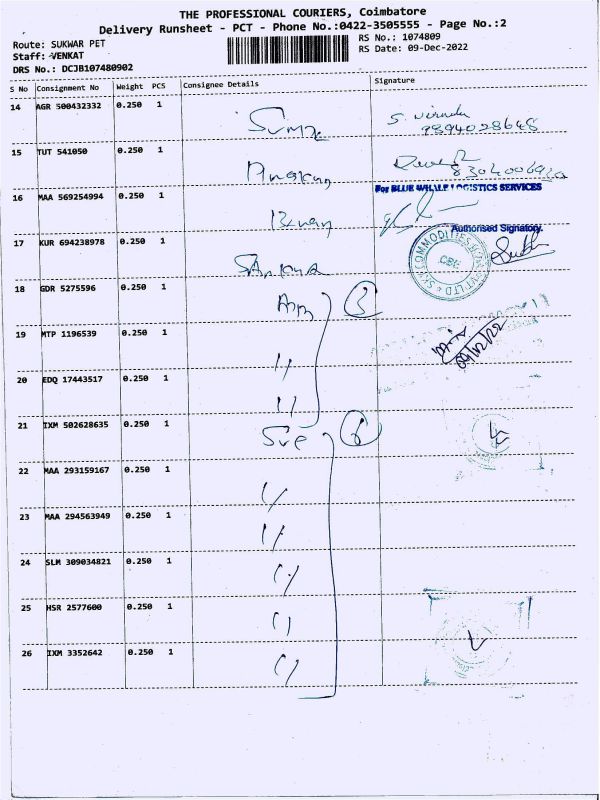 THE PROFESSIONAL COURIERS, Coimbatore
Delivery Runsheet - PCT - Phone No.:0422-3505555 - Page No.:2
Route: SUKWAR PET
RS No.: 1074809
Staff: VENKAT
RS Date: 09-Dec-2022
DRS No.: DCJB107480902
S No Consignment No Weight PCS Consignee Details Signature
14 AGR 500432332 0.250 1
9894028648
15 TUT 541050 0.250 1
16 MAA 569254994 0.250 1
For BLUE WHALE LOGISTICS SERVICES
Authorised Signatory.
17 KUR 694238978 0.250 1
CBE
18 GDR 5275596 0.250 1 3
19 MTP 1196539 0.250 1 "
09/12/22
20 EDQ 17443517 0.250 1 "
21 IXM 502628635 0.250 1 Sve 6
22 MAA 293159167 0.250 1 "
23 MAA 294563949 0.250 1 "
24 SLM 309034821 0.250 1 "
25 HSR 2577600 0.250 1 "
26 IXM 3352642 0.250 1 "